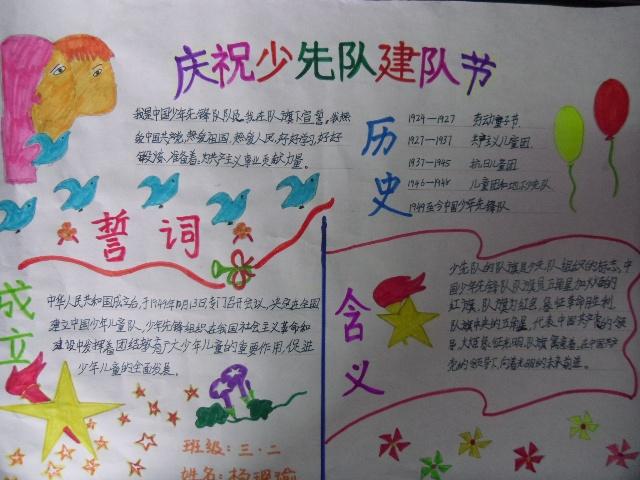 庆祝少先队建队节
我是中国少年先锋队队员,我在队旗下宣誓:我热
爱中国共产党,热爱祖国,热爱人民,好好学习,好好
锻炼,准备着:为共产主义事业贡献力量。
誓词
历史
1924—1927 劳动童子节
1927—1937 共产主义儿童团
1937—1945 抗日儿童团
1946—1948 儿童团和地下少先队
1949至今中国少年先锋队
成立
中华人民共和国成立台,于1949年10月13日
建立中国少年儿童队,少年先锋组织在我国社会主义革命和
建设中发挥着团结教育广大少年儿童的重要作用,促进
少年儿童的全面发展。
含义
少先队的队旗是少先队组织的标志,中
国少年先锋队队旗是五角星加火炬的
红旗,队旗为红色,象征革命胜利,
队旗中央的五角星,代表中国共产党的领
导,火炬象征光明,队旗寓意着,在中国共产
党的领导下,向着光明的未来前进。
班级:三·二
姓名:杨